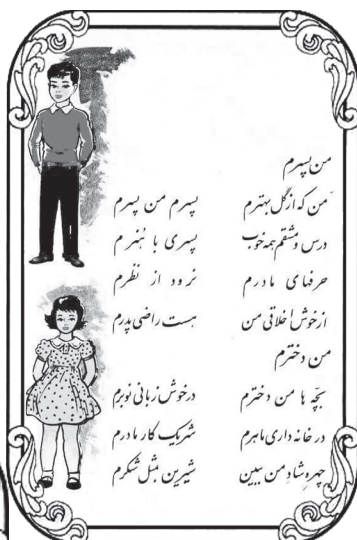 من پسرم
من که از گل بهترم پسرم من پسرم
درس و مشقم همه خوب پسری با هُنرم
حرفهای مادرم نرود از نظرم
از خوش اخلاقی من هست راضی پدرم
من دخترم
بچّه ها من دخترم در خوش زبانی نوبرم
در خانه داری ماهرم شریک کار مادرم
چهره شاد من ببین شیرین مثل شکرم